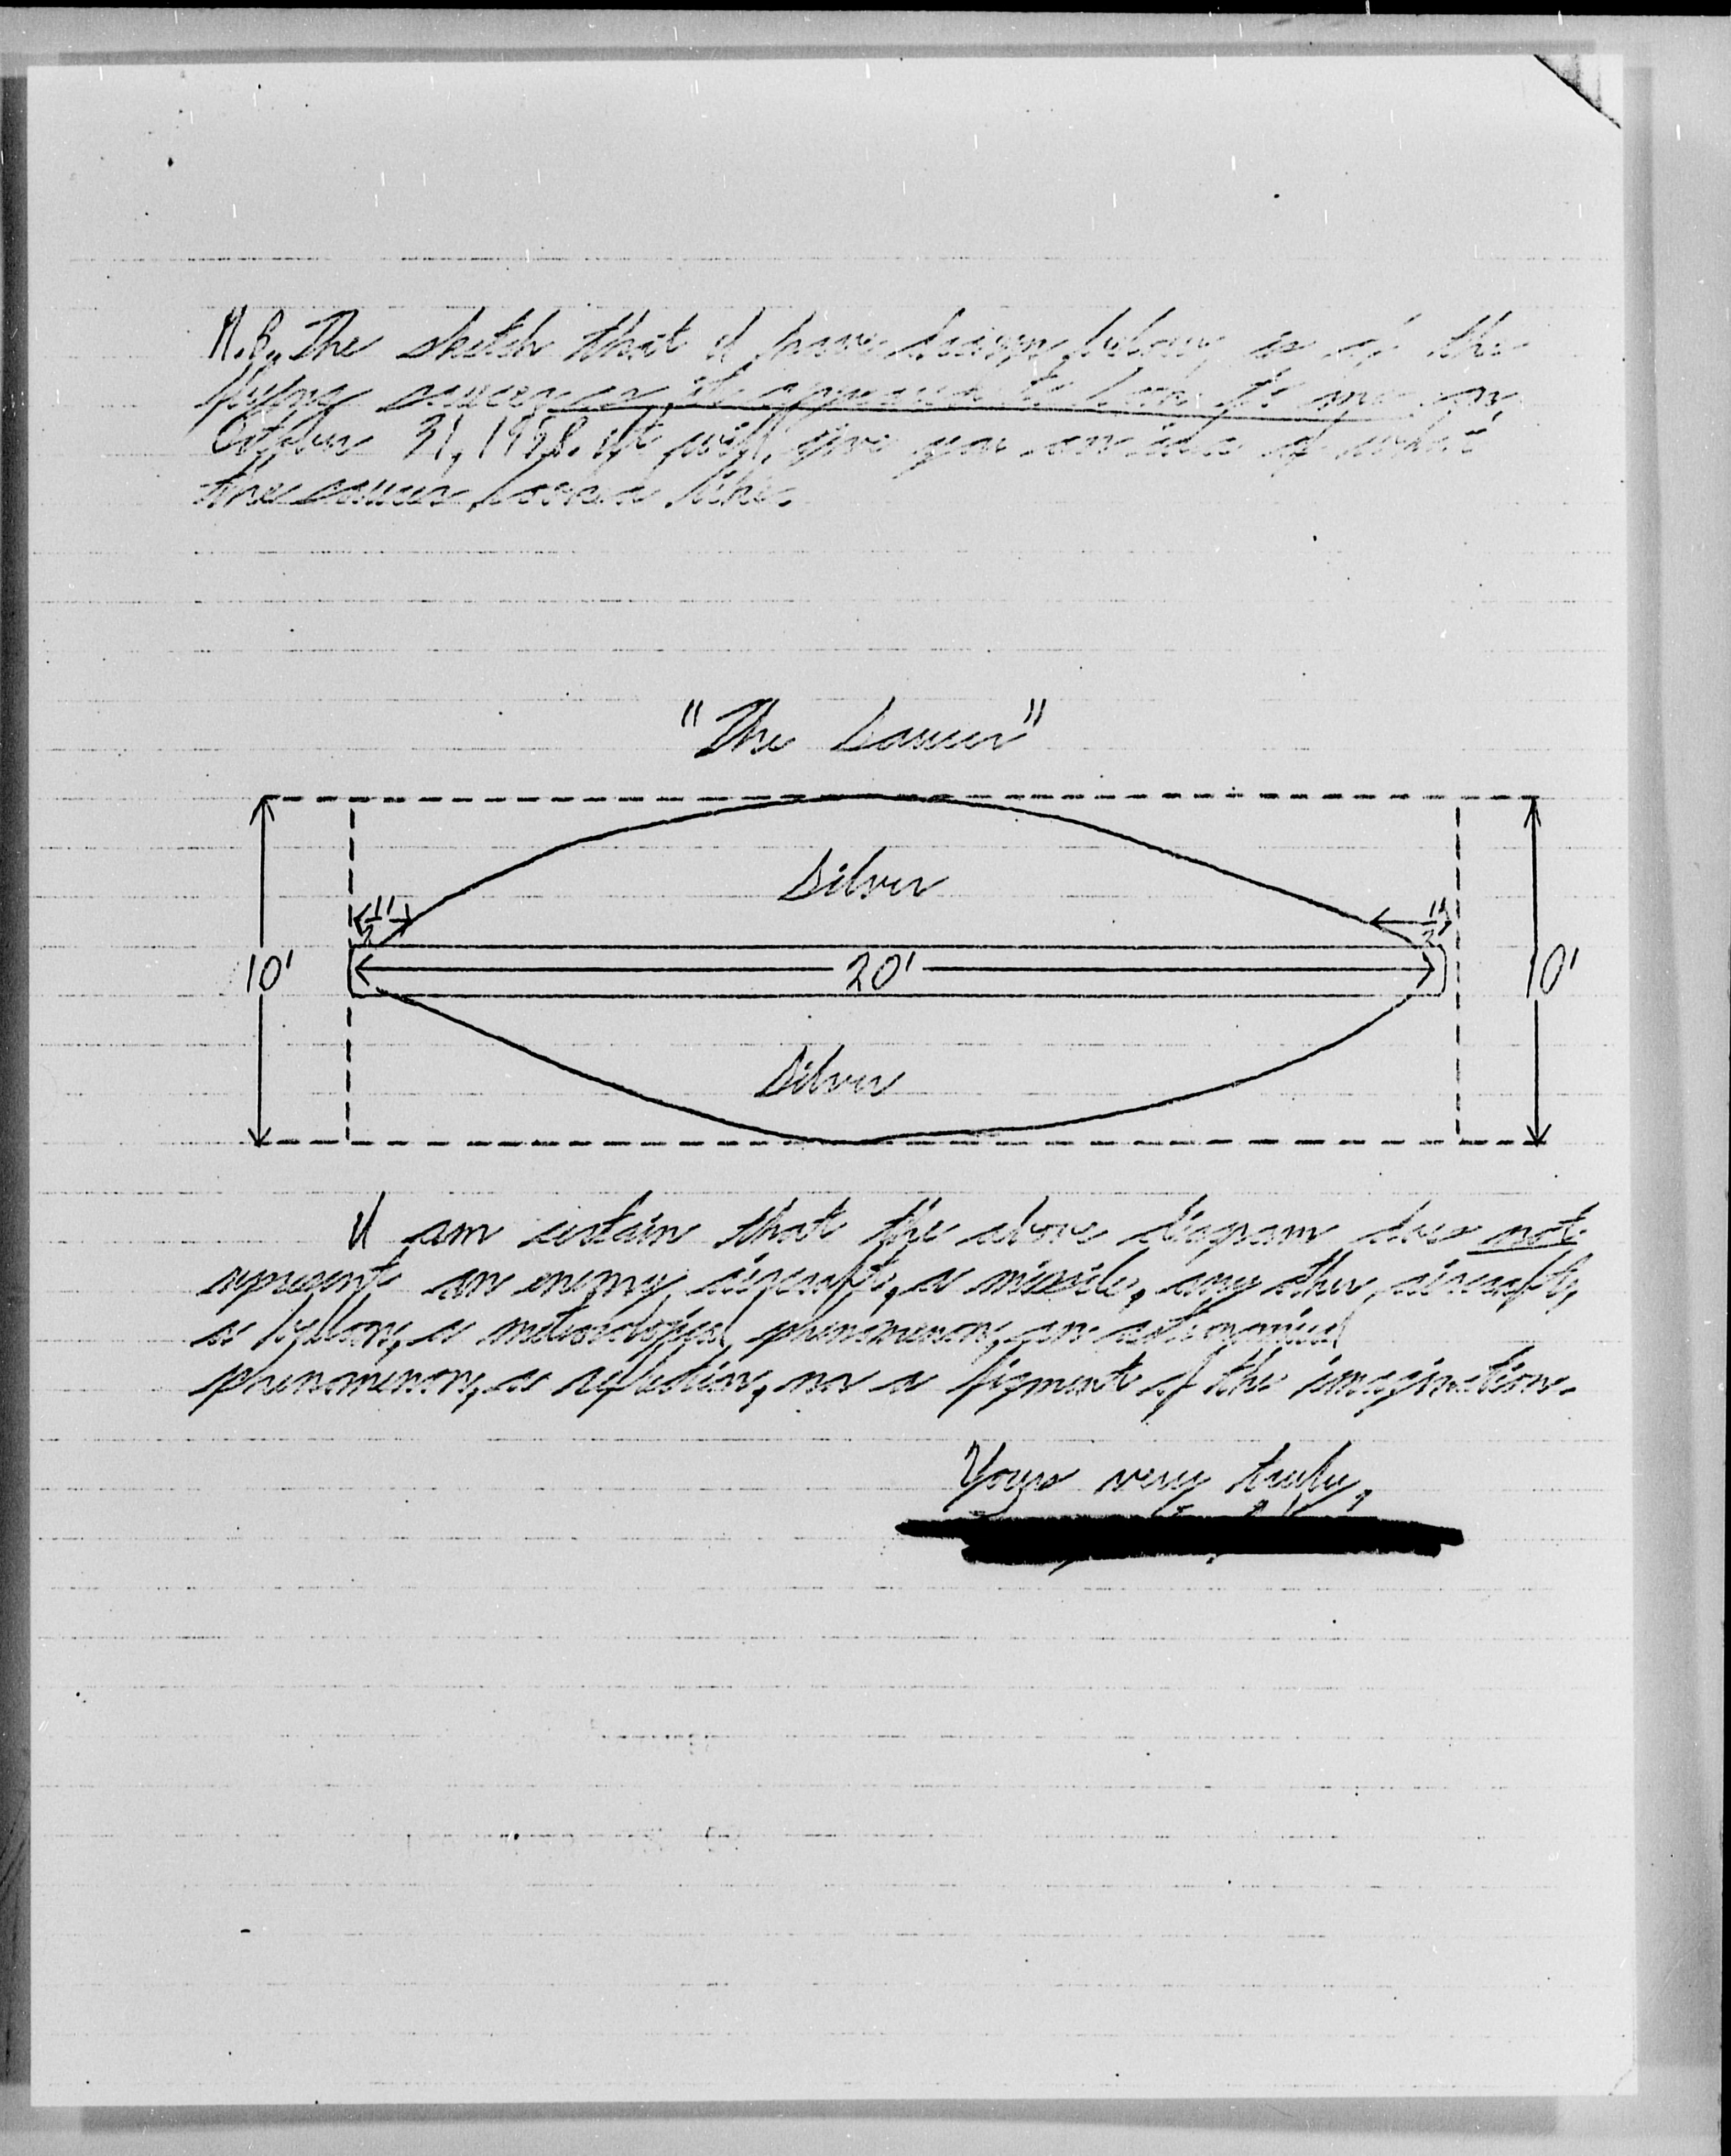 N.B. The sketch that I have drawn below is of the
flying saucer as it appeared to look to me on
October 31, 1958. It will give you an idea of what
the saucer looked like.
"The Saucer"
Silver
1/2' 1/2'
10' 20' 10'
Silver
I am certain that the above diagram does not
represent an enemy aircraft, a missile, any other aircraft,
a balloon, a meteorological phenomenon, an astronomical
phenomenon, a reflection, nor a figment of the imagination.
Yours very truly,